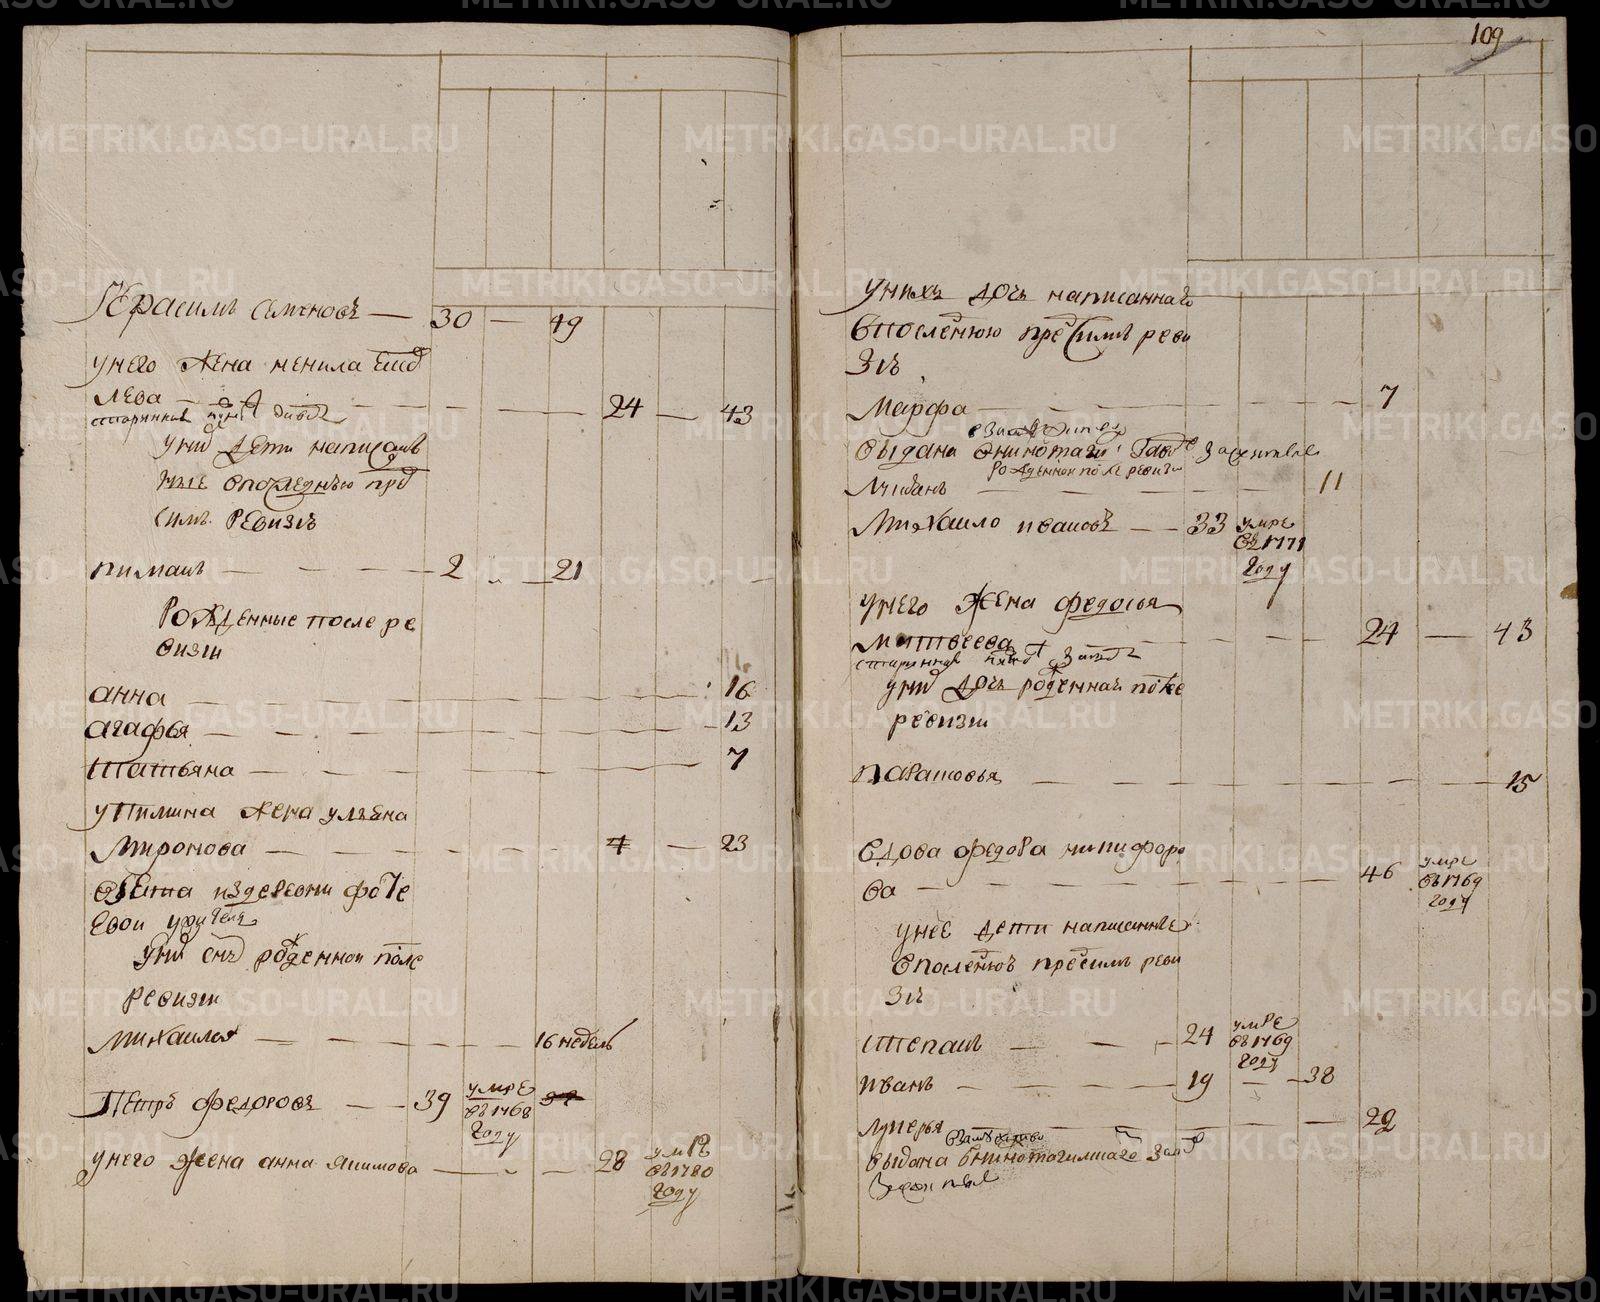 Герасимъ семеновъ — 30 — 49
унего жена ненила
лева — 24 — 43
уних дети написан
ные впоследнею пред
симъ ревизiю
пимаиъ — 2 — 21
Рожденные после ре
визiи
анна — 16
агафья — 13
татьяна — 7
упимина жена ульяна
Миронова — 4 — 23
взята издеревни
уних снъ рожденнои после
ревизiи
михаило — 16 недель
Петръ федоровъ — 39 умре въ 1768 году
унего жена анна якимова — 28 умре въ 1780 году
109
унихъ дочь написаная
впоследнюю предсимъ реви
зiю
Марфа — 7
выдана
рожденнои после ревизiи
— 11
Михаило ивановъ — 33 умре въ 1771 году
унего жена федосья
матвеева — 24 — 43
уних дочь рожденная после
ревизiи
парасковья — 15
вдова федора никифоро
ва — 46 умре въ 1769 году
унее дети написанные
впоследнюю предсимъ реви
зiю
степанъ — 24 умре въ 1769 году
иванъ — 19 — 38
лукерья — 29
выдана
METRIKI.GASO-URAL.RU